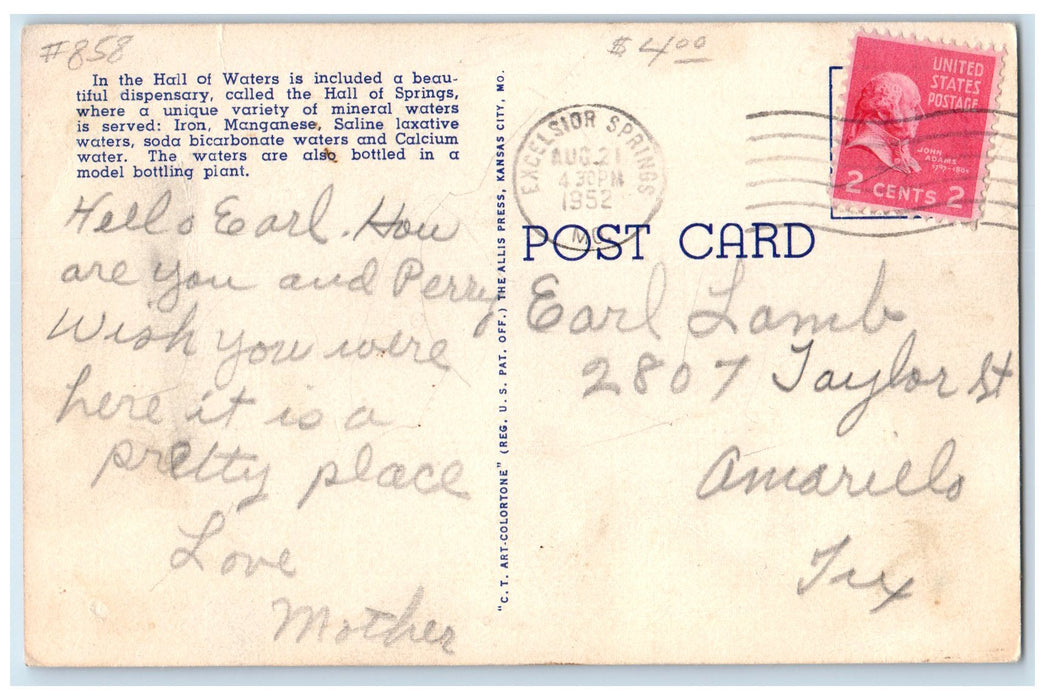 #858
$4.00
In the Hall of Waters is included a beau-
tiful dispensary, called the Hall of Springs,
where a unique variety of mineral waters
is served: Iron, Manganese, Saline laxative
waters, soda bicarbonate waters and Calcium
water. The waters are also bottled in a
model bottling plant.
Hello Earl. How
are you and Perry
Wish you were
here it is a
pretty place
Love
Mother
"C. T. ART-COLORTONE" (REG. U. S. PAT. OFF.) THE ALLIS PRESS, KANSAS CITY, MO.
EXCELSIOR SPRINGS
AUG. 21
4 30 PM
1952
MO.
UNITED
STATES
POSTAGE
JOHN
ADAMS
1797-1801
2 CENTS 2
POST CARD
Earl Lamb
2807 Taylor St
Amarillo
Tex